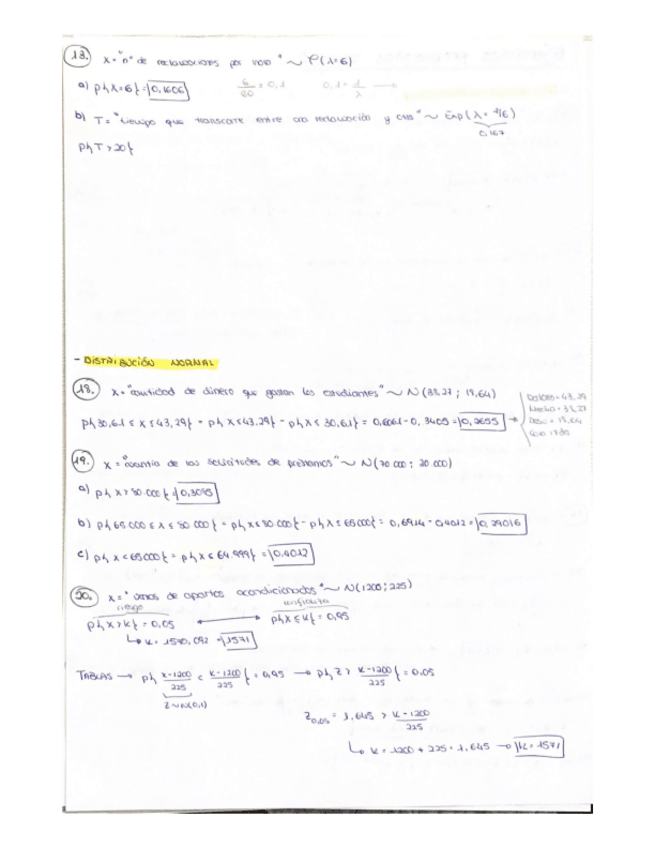 13. X = "nº de reclamaciones por hora" ~ P(λ=6)
a) P{X=6} = 0,1606 6/60 = 0,1 0,1 = 1/λ →
b) T = "tiempo que transcurre entre una reclamación y otra" ~ Exp(λ = 1/6)
0,167
P{T>20}
- DISTRIBUCIÓN NORMAL
18. X = "cantidad de dinero que gastan los estudiantes" ~ N(38,27 ; 18,64)
P{30,61 ≤ X ≤ 43,29} = P{X ≤ 43,29} - P{X ≤ 30,61} = 0,6061 - 0,3405 = 0,2655 →
= 43,29
Media = 38,27
Desv = 18,64
19. X = "cuantía de las solicitudes de préstamos" ~ N(70.000 ; 20.000)
a) P{X > 80.000} = 0,3085
b) P{65000 ≤ X ≤ 80.000} = P{X ≤ 80.000} - P{X ≤ 65000} = 0,6914 - 0,4012 = 0,29016
c) P{X < 65000} = P{X ≤ 64.999} = 0,4012
20. X = " de aparatos acondicionados" ~ N(1200 ; 225)
riesgo confianza
P{X > K} = 0,05 ↔ P{X ≤ K} = 0,95
↳ K = 1570,092 = 1571
TABLAS → P{ X-1200/225 < K-1200/225 } = 0,95 → P{ Z > K-1200/225 } = 0,05
Z~N(0,1)
Z0,05 = 1,645 > K-1200/225
↳ K = 1200 + 225 · 1,645 → K = 1571